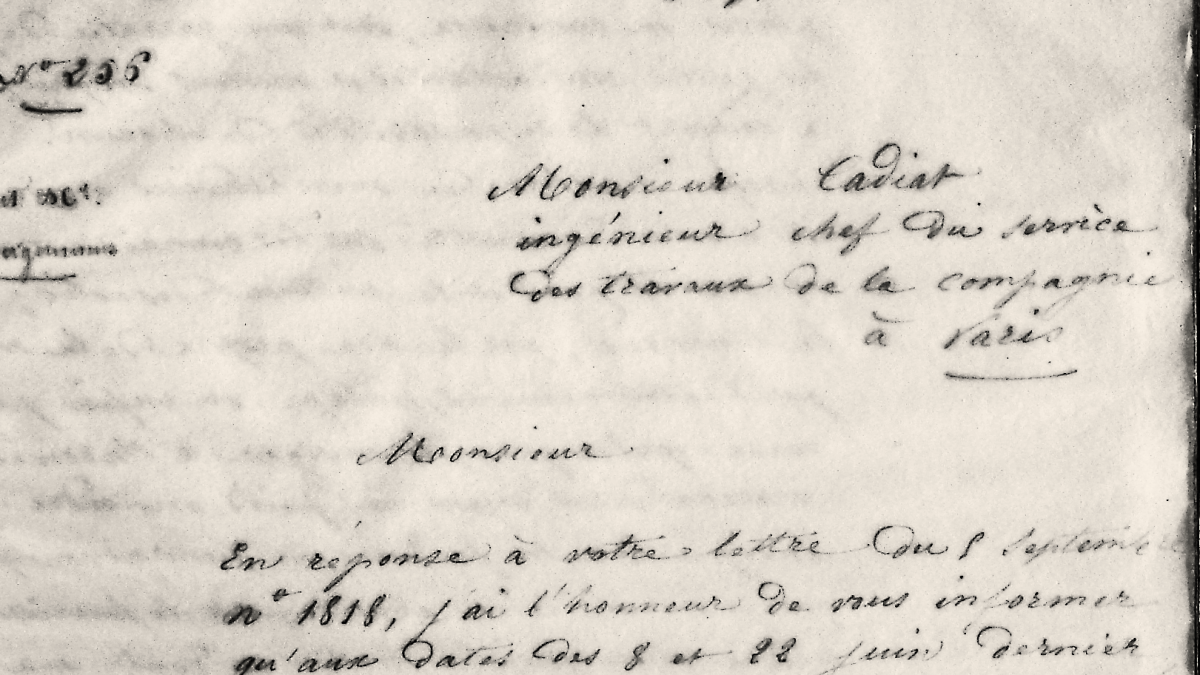 N° 256
Monsieur Cadiat
ingénieur chef du service
des travaux de la compagnie
à Paris
Monsieur
En réponse à votre lettre du 5 septembre
n° 1818, j'ai l'honneur de vous informer
qu'aux dates des 8 et 22 juin dernier